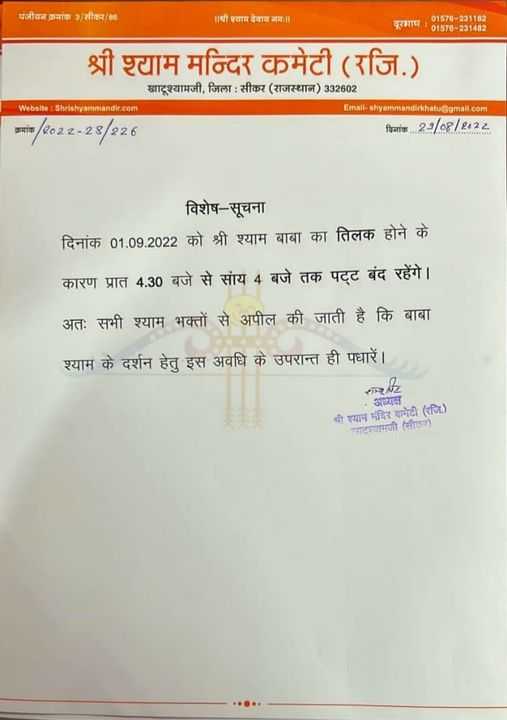 पंजीयन क्रमांक 3/सीकर/86
।।श्री श्याम देवाय नमः।।
दूरभाष : 01576-231182
01576-231482
श्री श्याम मन्दिर कमेटी (रजि.)
खाटूश्यामजी, जिला : सीकर (राजस्थान) 332602
Website : Shrishyammandir.com
Email- shyammandirkhatu@gmail.com
क्रमांक/2022-23/226
दिनांक 29/08/2022
विशेष–सूचना
दिनांक 01.09.2022 को श्री श्याम बाबा का तिलक होने के
कारण प्रात 4.30 बजे से सांय 4 बजे तक पट्ट बंद रहेंगे।
अतः सभी श्याम भक्तों से अपील की जाती है कि बाबा
श्याम के दर्शन हेतु इस अवधि के उपरान्त ही पधारें।
अध्यक्ष
श्री श्याम मंदिर कमेटी (रजि.)
खाटूश्यामजी (सीकर)